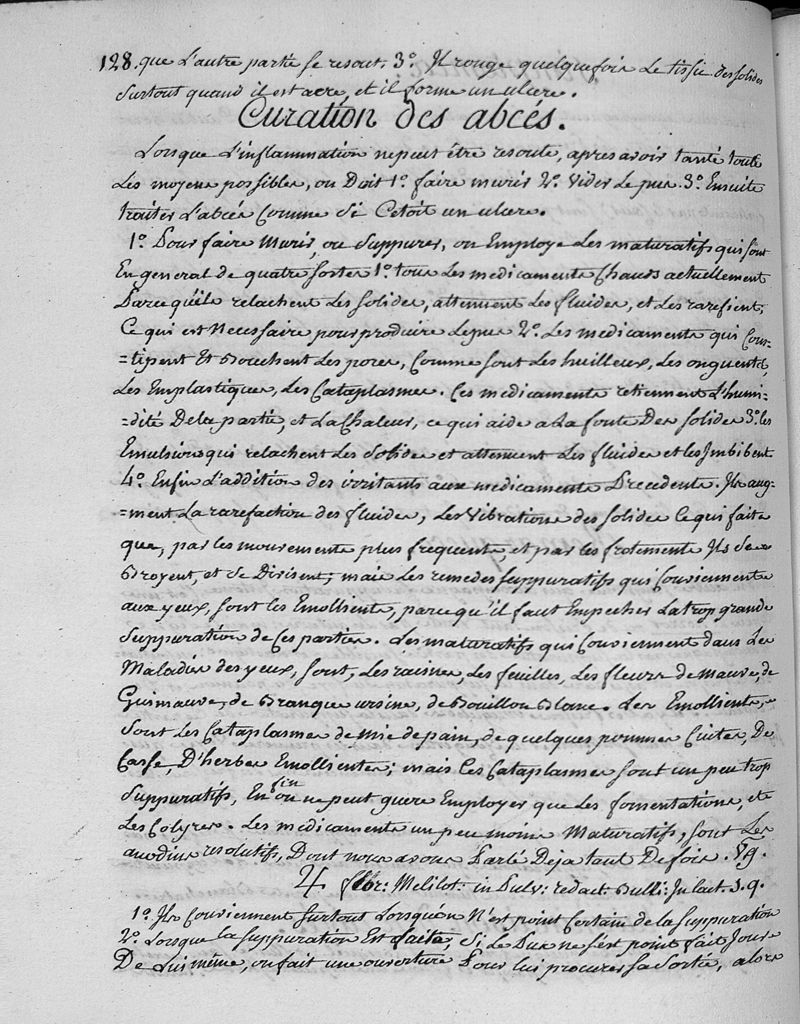 128. que L'autre partie se resout. 3º. Il rouge quelquefois Le tissu des solides
surtout quand il est acre, et il forme un ulcere.
Curation des abcés.
Lorsque L'inflammation ne peut être resoute, apres avoir tanté toute
Les moyens possibles, on Doit 1º. faire murir 2º. Vider Le pus. 3º. Ensuite
traiter L'abcés Comme Si C'etoit un ulcere.
1º. Pour faire Murir, ou Suppurer, on Employe Les maturatifs qui sont
En general de quatre sortes 1º. tous Les medicaments Chauds actuellement
Parcequ'ils relachent Les solides, attenuent Les fluides, et Les rarefient,
Ce qui est Necessaire pour produire Le pus 2º. Les medicaments qui Cons-
=tipent Et Bouchent Les pores, Comme sont Les huilleux, Les onguents,
Les Emplastiques, Les Cataplasmes. Ces medicaments retiennent L'humi-
=dité De la partie, et La Chaleur, ce qui aide a La fonte Des solides 3º. les
Emulsions qui relachent Les Solides et attenuent Les fluides et les Imbibent
4º. Enfin L'addition des irritants aux medicaments Precedents. Ils aug-
=ment La rarefaction des fluides, Les Vibrations des solides Ce qui fait
que, par les mouvements plus frequents, et par les frotements Ils Se
Broyent, et Se Divisent; mais Les remedes suppuratifs qui Conviennent
aux yeux, sont les Emollients, parce qu'il faut Empecher La trop grande
Suppuration de Ces parties. Les maturatifs qui Conviennent dans Les
Maladies des yeux, sont, Les racines, Les feuilles, Les fleurs de Mauve, de
Guimauve, de Branque ursine, de Bouillon Blanc. Les Emollients,
Sont Les Cataplasmes de mie de pain, de quelques pommes Cuites, De
Casse, D'herbes Emollientes; mais Ces Cataplasmes sont un peu trop
Suppuratifs, Enfin on ne peut guere Employer que Les fomentations, et
Les Colyres. Les medicaments un peu moins Maturatifs, sont Les
anodins resolutifs, Dont nous avons Parlé Deja tant De fois. Vg.
♃ flor: Melilot: in Pulv: redact: Bulli: In lact. S. q.
1º. Ils Conviennent Surtout Lorsqu'on N'est point Certain de la Suppuration
2º. Lorsque la suppuration Est faite, Si Le Pus ne s'est point fait Jour
De Lui même, on fait une ouverture Pour lui procurer sa Sortie, alors